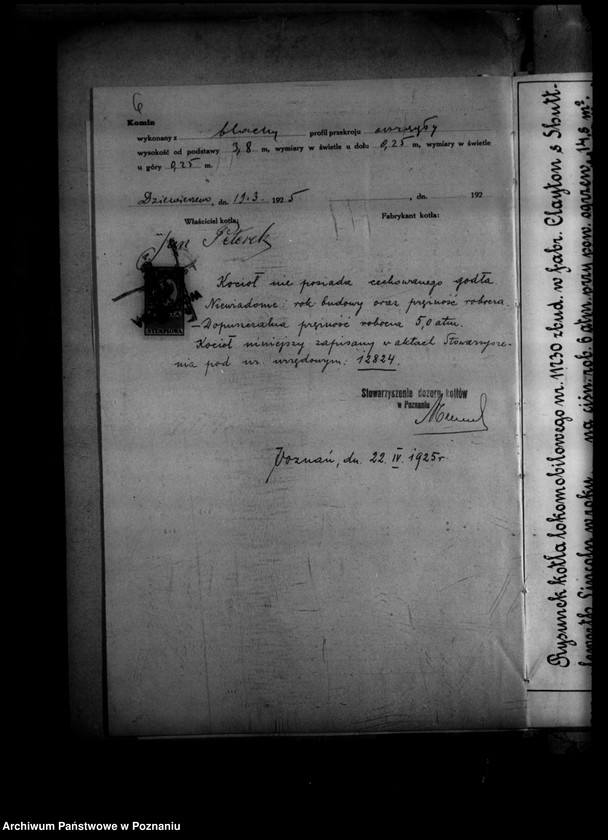 6
Komin
wykonany z blachy profil przekroju okrągły
wysokość od podstawy 3,8 m, wymiary w świetle u dołu 0,25 m, wymiary w świetle
u góry 0,25 m.
dn. 19.3. 1925 , dn. 192
Właściciel kotła: Fabrykant kotła:
Jan Peterek
Kocioł nie posiada cechowanego godła
Niewiadome: rok budowy oraz prężność robocza.
— Dopuszczalna prężność robocza 5,0 atm.
Kocioł niniejszy zapisany w aktach Stowarzysze-
nia pod nr. urzędowym: 12824.
STEMPLOWA
Stowarzyszenie dozoru kotłów
w Poznaniu
Poznań, dn. 22. IV. 1925 r
Rysunek kotła lokomobilowego nr. 11230 zbud. w fabr. Clayton & Shutt-
leworth Lincoln w roku na ciśn. rob. 6 atm przy pow. ogrzew. 14,5 m².
Archiwum Państwowe w Poznaniu